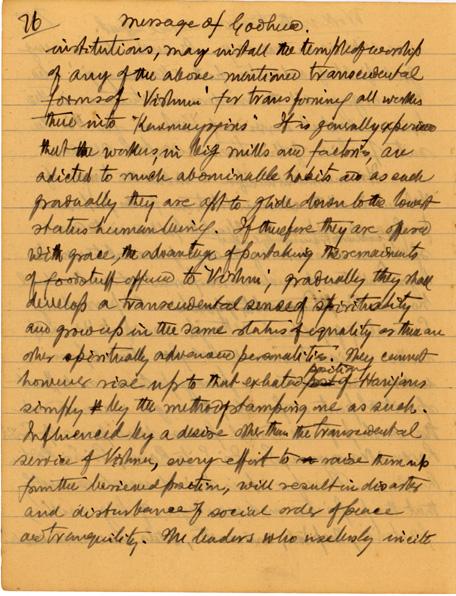 76 Message of Godhead.
institutions, may install the temple of worship
of any of the above mentioned transcedental
forms of 'Vishnu' for transforming all workers
there into 'Karmayogins'. It is generally experienced
that the workers, in big mills and factories, are
adicted to much abominable habits and as such
gradually they are apt to glide down to the lowest
status human being. If therefore they are offered
with grace, the advantage of partaking the remainants
of foodstuff offered to 'Vishnu', gradually they shall
develop a transcendental sense of spirituality
and grow up in the same status of equality as there are
other spiritually advanced personalities. They cannot
however rise up to that exhalted position of Harijans
simply by the method of stamping one as such.
Influenced by a desire other than the transcendental
service of Vishnu, every effort to raise them up
from their position, will result in disaster
and disturbance of social order of peace
and tranquility. The leaders who uselessly incite